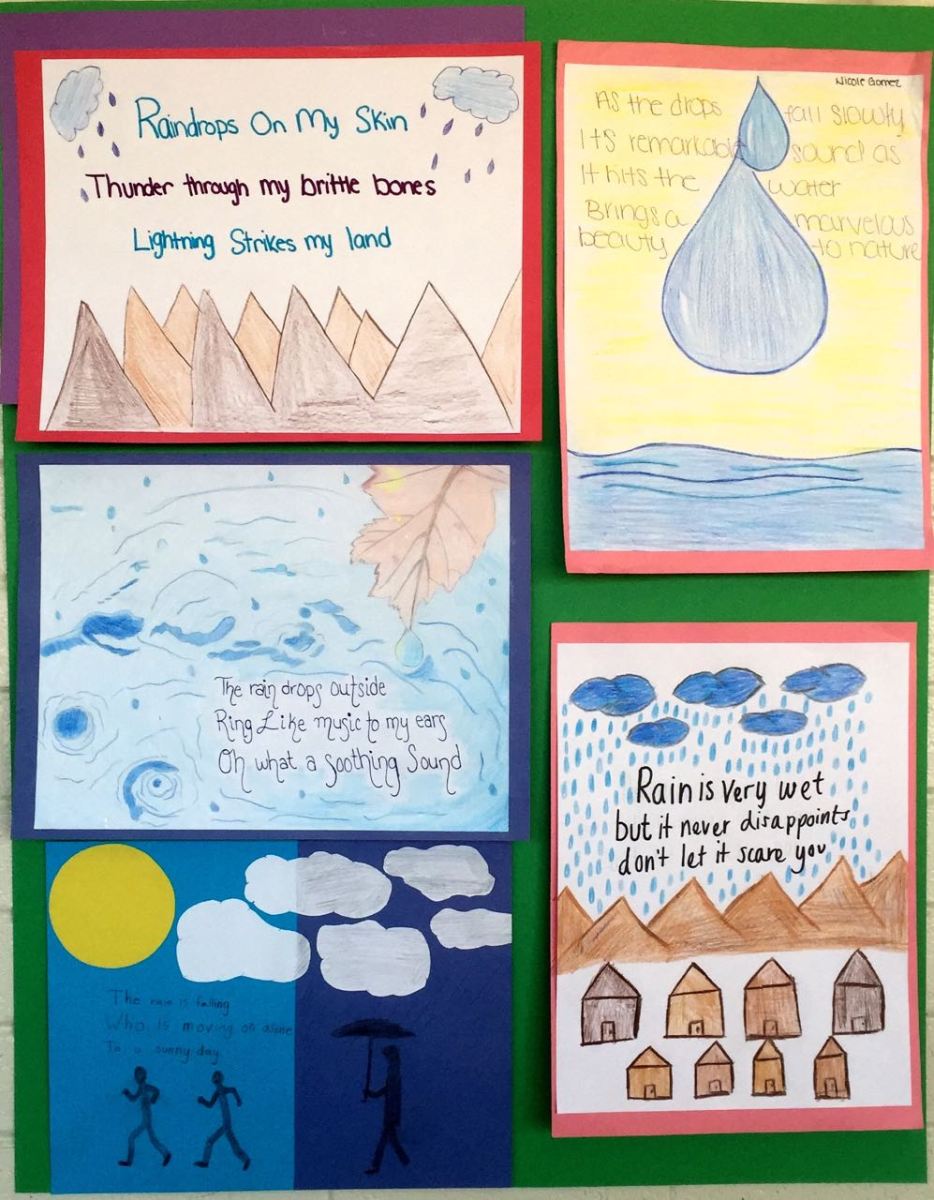 Raindrops On My Skin
Thunder through my brittle bones
Lightning Strikes my land
Nicole Gomez
As the drops fall slowly
Its remarkable sound as
It hits the water
Brings a marvelous
beauty to nature
The rain drops outside
Ring Like music to my ears
Oh what a soothing Sound
Rain is very wet
but it never disappoints
don't let it scare you
The rain is falling
Who is moving on alone
To a sunny day